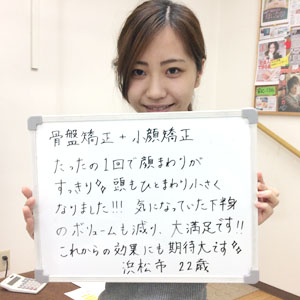 骨盤矯正 + 小顔矯正
たったの1回で顔まわりが
すっきり!! 頭もひとまわり小さく
なりました!!! 気になっていた下半身
のボリュームも減り、大満足です!!
これからの効果にも期待大です!!
浜松市 22歳